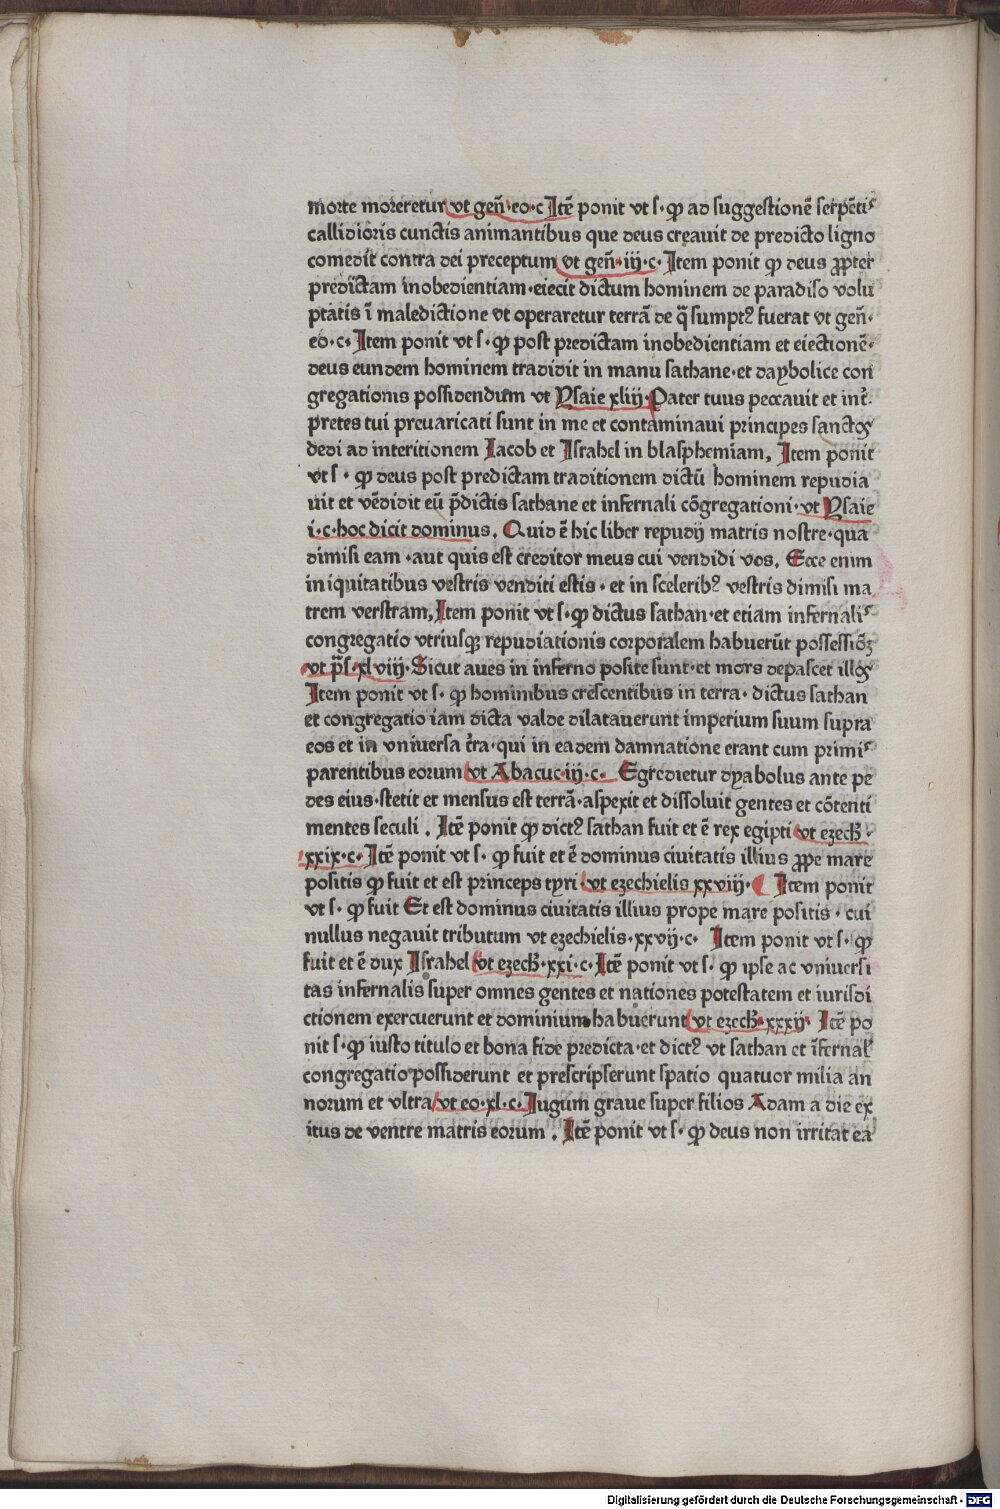 morte moreretur vt geñ·eo·c Itē ponit vt s·ꝙ ad suggestionē serpēti᷒
callidioris cunctis animantibus que deus creauit de predicto ligno
comedit contra dei preceptum vt geñ·iij·c· Item ponit ꝙ deus ꝓpter
predictam inobedientiam·eiecit dictum hominem de paradiso volu
ptatis ī maledictione vt operaretur terrā de q̄ sumptꝰ fuerat vt geñ·
eo·c· Item ponit vt s·ꝙ post predictam inobedientiam et eiectionē·
deus eundem hominem tradidit in manu sathane·et daybolice con
gregationis possidendum vt Ysaie xliij·Pater tuus peccauit et int̄·
pretes tui preuaricati sunt in me et contaminaui principes sanctos
dedi ad interitionem Iacob et Israhel in blasphemiam, Item ponit
vt s· ꝙ deus post predictam traditionem dictū hominem repudia
uit et vēdidit eū p̄dictis sathane et infernali cōgregationi·vt Ysaie
i·c·hoc dicit dominus. Quid ē hic liber repudij matris nostre·qua
dimisi eam·aut quis est creditor meus cui vendidi vos. Ecce enim
in iquitatibus vestris venditi estis·et in sceleribꝰ vestris dimisi ma
trem verstram, Item ponit vt s·ꝙ dictus sathan·et etiam infernali᷒
congregatio vtriusqꝫ repudiationis corporalem habuerūt possessiōꝫ
·vt p̄s·xlviij·Sicut aues in inferno posite sunt·et mors depascet illos
Item ponit vt s· ꝙ hominibus crescentibus in terra·dictus sathan
et congregatio iam dicta valde dilatauerunt imperium suum supra
eos et in vniuersa t̄ra·qui in eadem damnatione erant cum primi᷒
parentibus eorum vt Abacuc·iij·c· Egredietur dyabolus ante pe
des eius·stetit et mensus est terrā·aspexit et dissoluit gentes et cōtenti
mentes seculi. Itē ponit ꝙ dictꝰ sathan fuit et ē rex egipti vt ezech̄·
xxix·c· Itē ponit vt s· ꝙ fuit et ē dominus ciuitatis illius ꝓpe mare
positis ꝙ fuit et est princeps tyri·vt ezechielis xxviij· Item ponit
vt s·ꝙ fuit Et est dominus ciuitatis illius prope mare positis·cui
nullus negauit tributum vt ezechielis·xxvij·c· Item ponit vt s·ꝙ
fuit et ē dux Israhel vt ezech̄·xxi·c·Itē ponit vt s· ꝙ ipse ac vniuersi
tas infernalis super omnes gentes et nationes potestatem et iurisdi
ctionem exercuerunt et dominium habuerunt vt ezech̄·xxxij· Itē po
nit s·ꝙ iusto titulo et bona fide predicta·et dictꝰ vt sathan et īfernal᷒
congregatio possiderunt et prescripserunt spatio quatuor milia an
norum et vltra vt eo·xl·c·Iugum graue super filios Adam a die ex
itus de ventre matris eorum. Itē ponit vt s·ꝙ deus non irritat ea
Digitalisierung gefördert durch die Deutsche Forschungsgemeinschaft · DFG